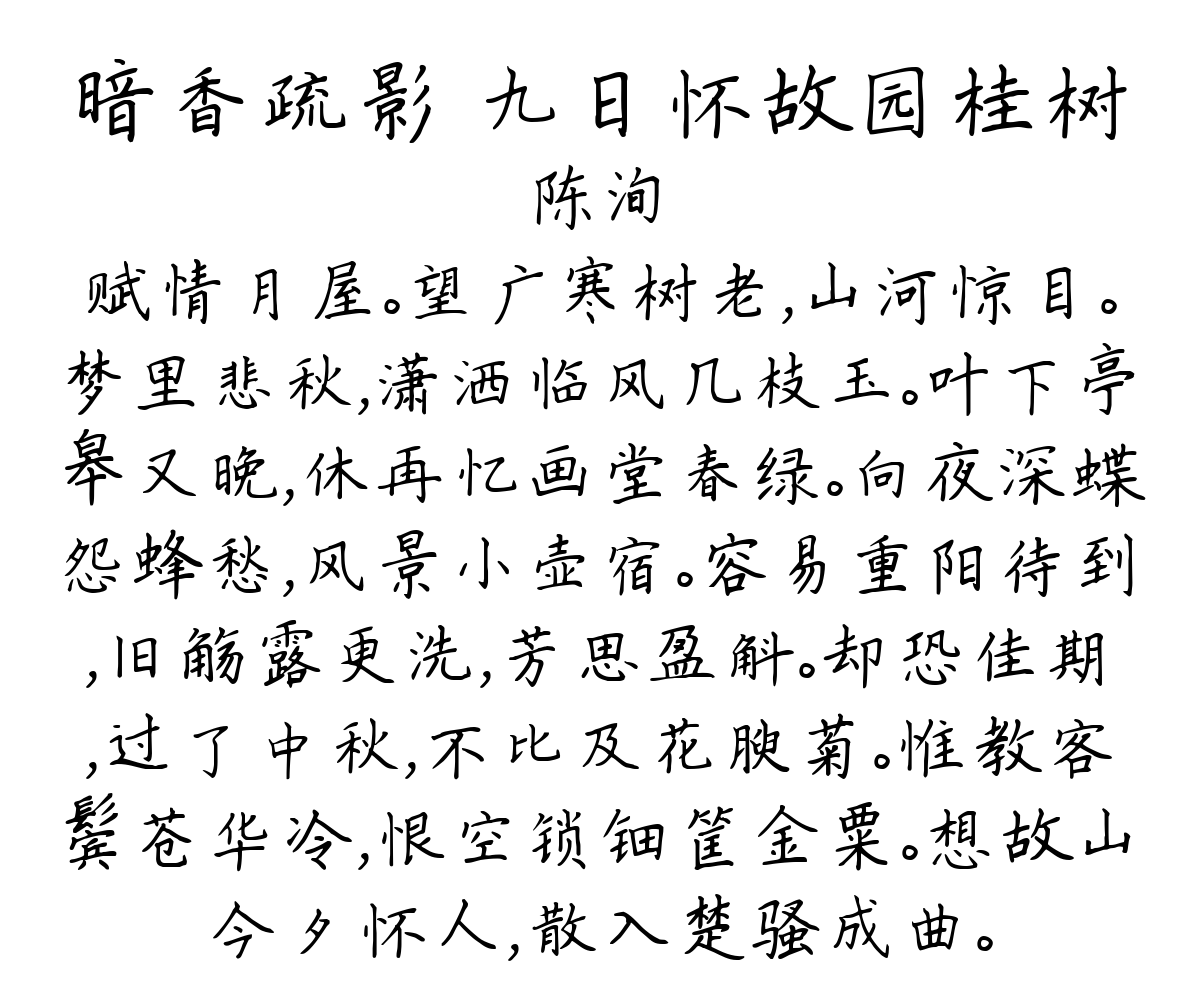 暗香疏影 九日怀故园桂树
陈洵
赋情月屋。望广寒树老,山河惊目。
梦里悲秋,潇洒临风几枝玉。叶下亭
皋又晚,休再忆画堂春绿。向夜深蝶
怨蜂愁,风景小壶宿。容易重阳待到
,旧觞露更洗,芳思盈斛。却恐佳期
,过了中秋,不比及花腴菊。惟教客
鬓苍华冷,恨空锁钿筐金粟。想故山
今夕怀人,散入楚骚成曲。